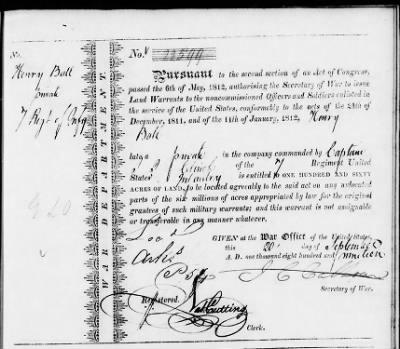 No.
Henry Ball
7 Regt of Infy
WAR DEPARTMENT.
No. 11599
Pursuant to the second section of an Act of Congress,
passed the 6th of May, 1812, authorising the Secretary of War to issue
Land Warrants to the noncommissioned Officers and Soldiers enlisted in
the service of the United States, conformably to the acts of the 24th of
December, 1811, and of the 11th of January, 1812, Henry
Ball
late a private in the company commanded by Captain
of the 7 Regiment United
States' Infantry is entitled to ONE HUNDRED AND SIXTY
ACRES OF LAND, to be located agreeably to the said act on any unlocated
parts of the six millions of acres appropriated by law for the original
grantees of such military warrants; and this warrant is not assignable
or transferable in any manner whatever.
GIVEN at the War Office of the United States,
this 20 day of September
A. D. one thousand eight hundred and nineteen
J C Calhoun
Secretary of War.
Registered.
Clerk.